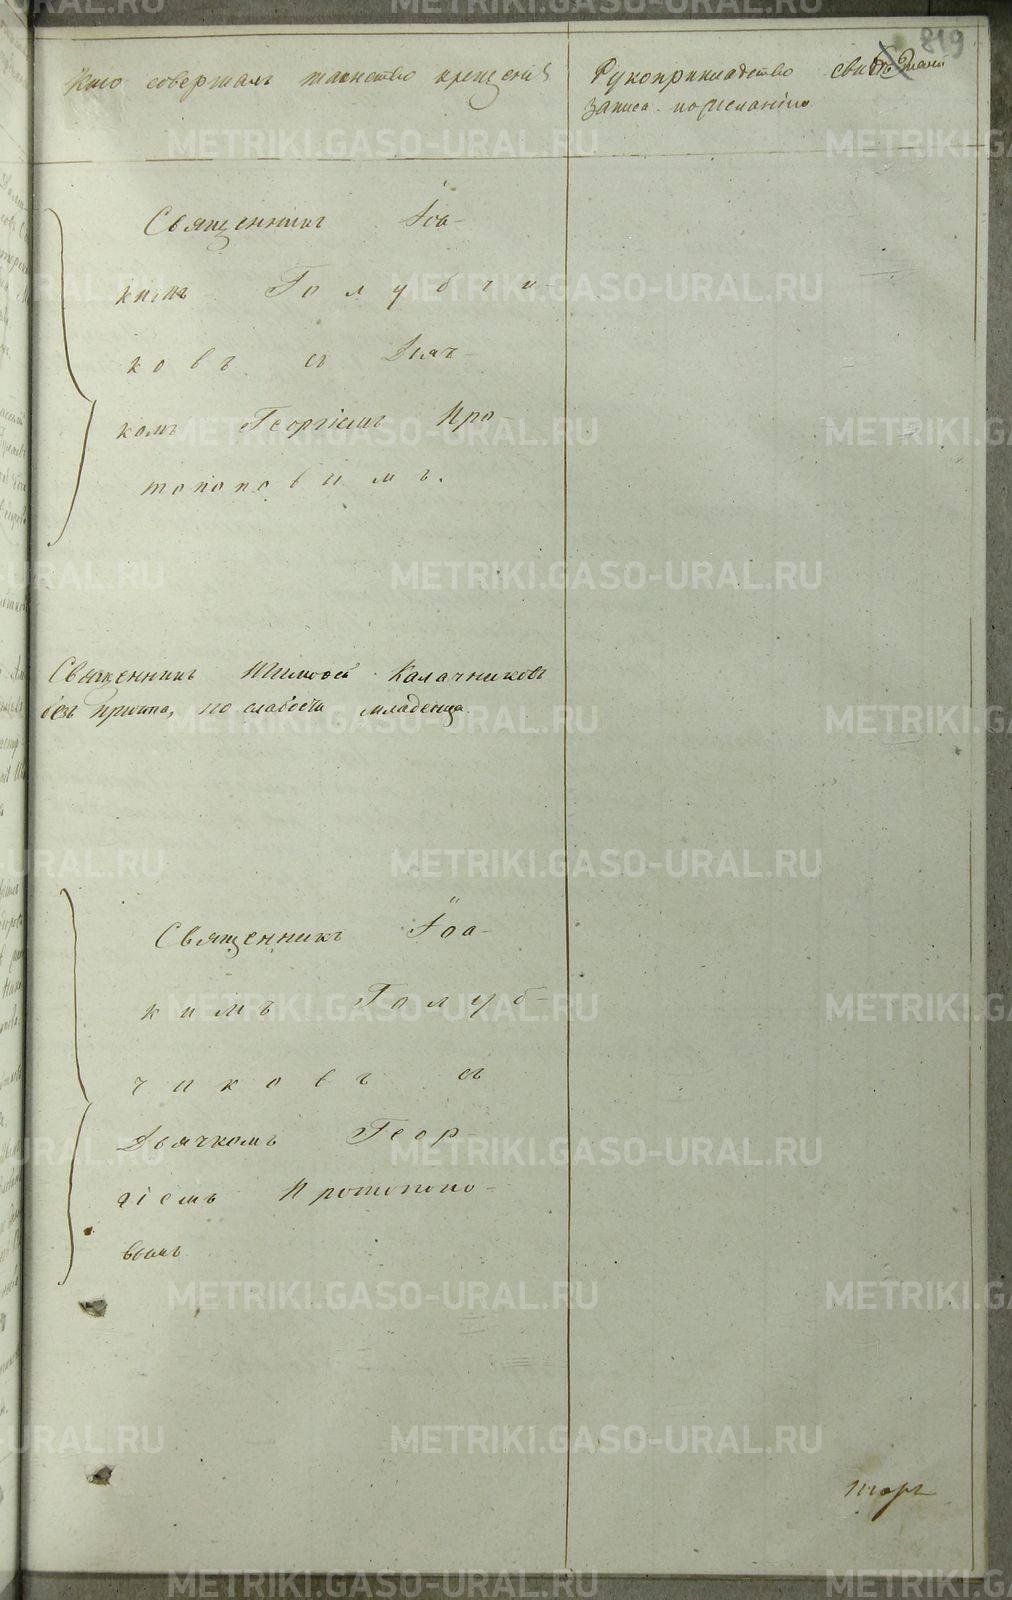 819
Кто совершалъ таинство крещенія
Рукоприкладство свидѣтелей
записа по желанію
Священникъ Іоа-
кимъ Голубчи-
ковъ съ Дьяч-
комъ Георгіемъ Про-
топоповымъ.
Священникъ Тимофей Калачниковъ
безъ причта, по слабости младенца.
Священникъ Іоа-
кимъ Голуб-
чиковъ съ
Дьячкомъ Геор
гіемъ Протопопо-
вымъ
METRIKI.GASO-URAL.RU